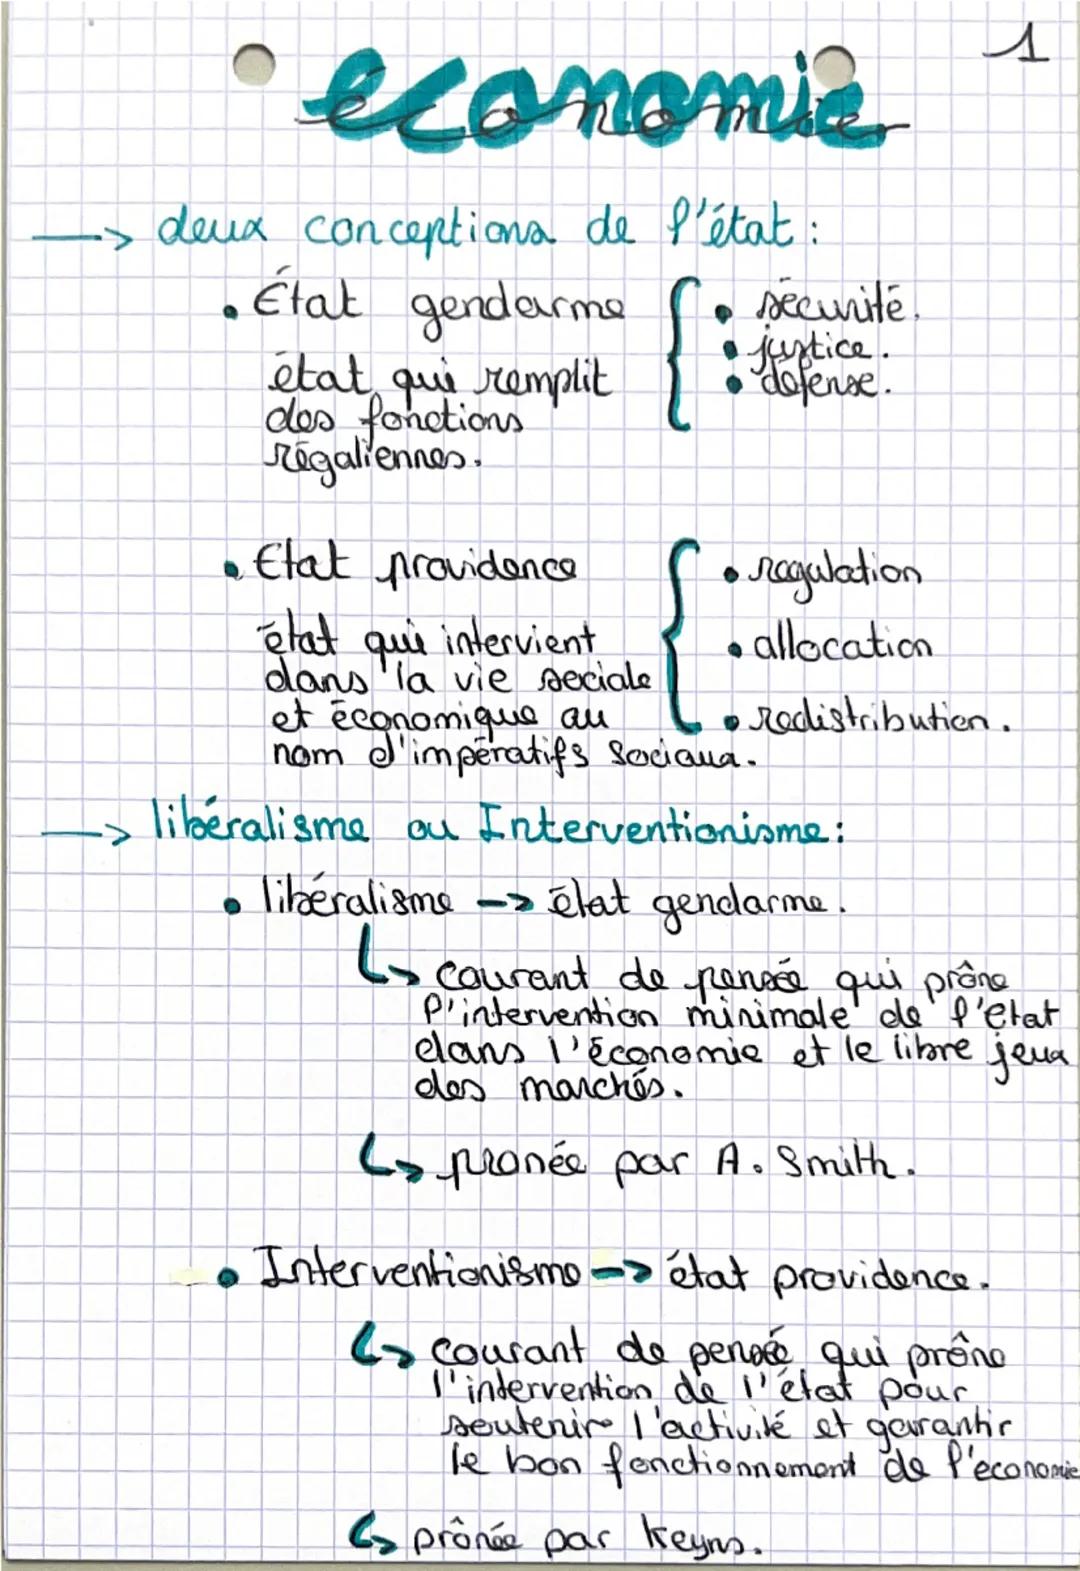 1
économie
→ deux conceptions de l'état :
• État gendarme
état qui remplit
des fonctions
régaliennes.
• sécurité.
• justice.
• défense.
• Etat providence
état qui intervient
dans la vie sociale
et économique au
nom d'impératifs sociaux.
• regulation
• allocation
• redistribution.
→ libéralisme ou Interventionisme :
• libéralisme → état gendarme.
↳ courant de pensée qui prône
l'intervention minimale de l'etat
dans l'économie et le libre jeux
des marchés.
↳ pronée par A. Smith.
• Interventionisme → état providence.
↳ courant de pensée qui prône
l'intervention de l'état pour
soutenir l'activité et garantir
le bon fonctionnement de l'economie
↳ prônée par Keyns.